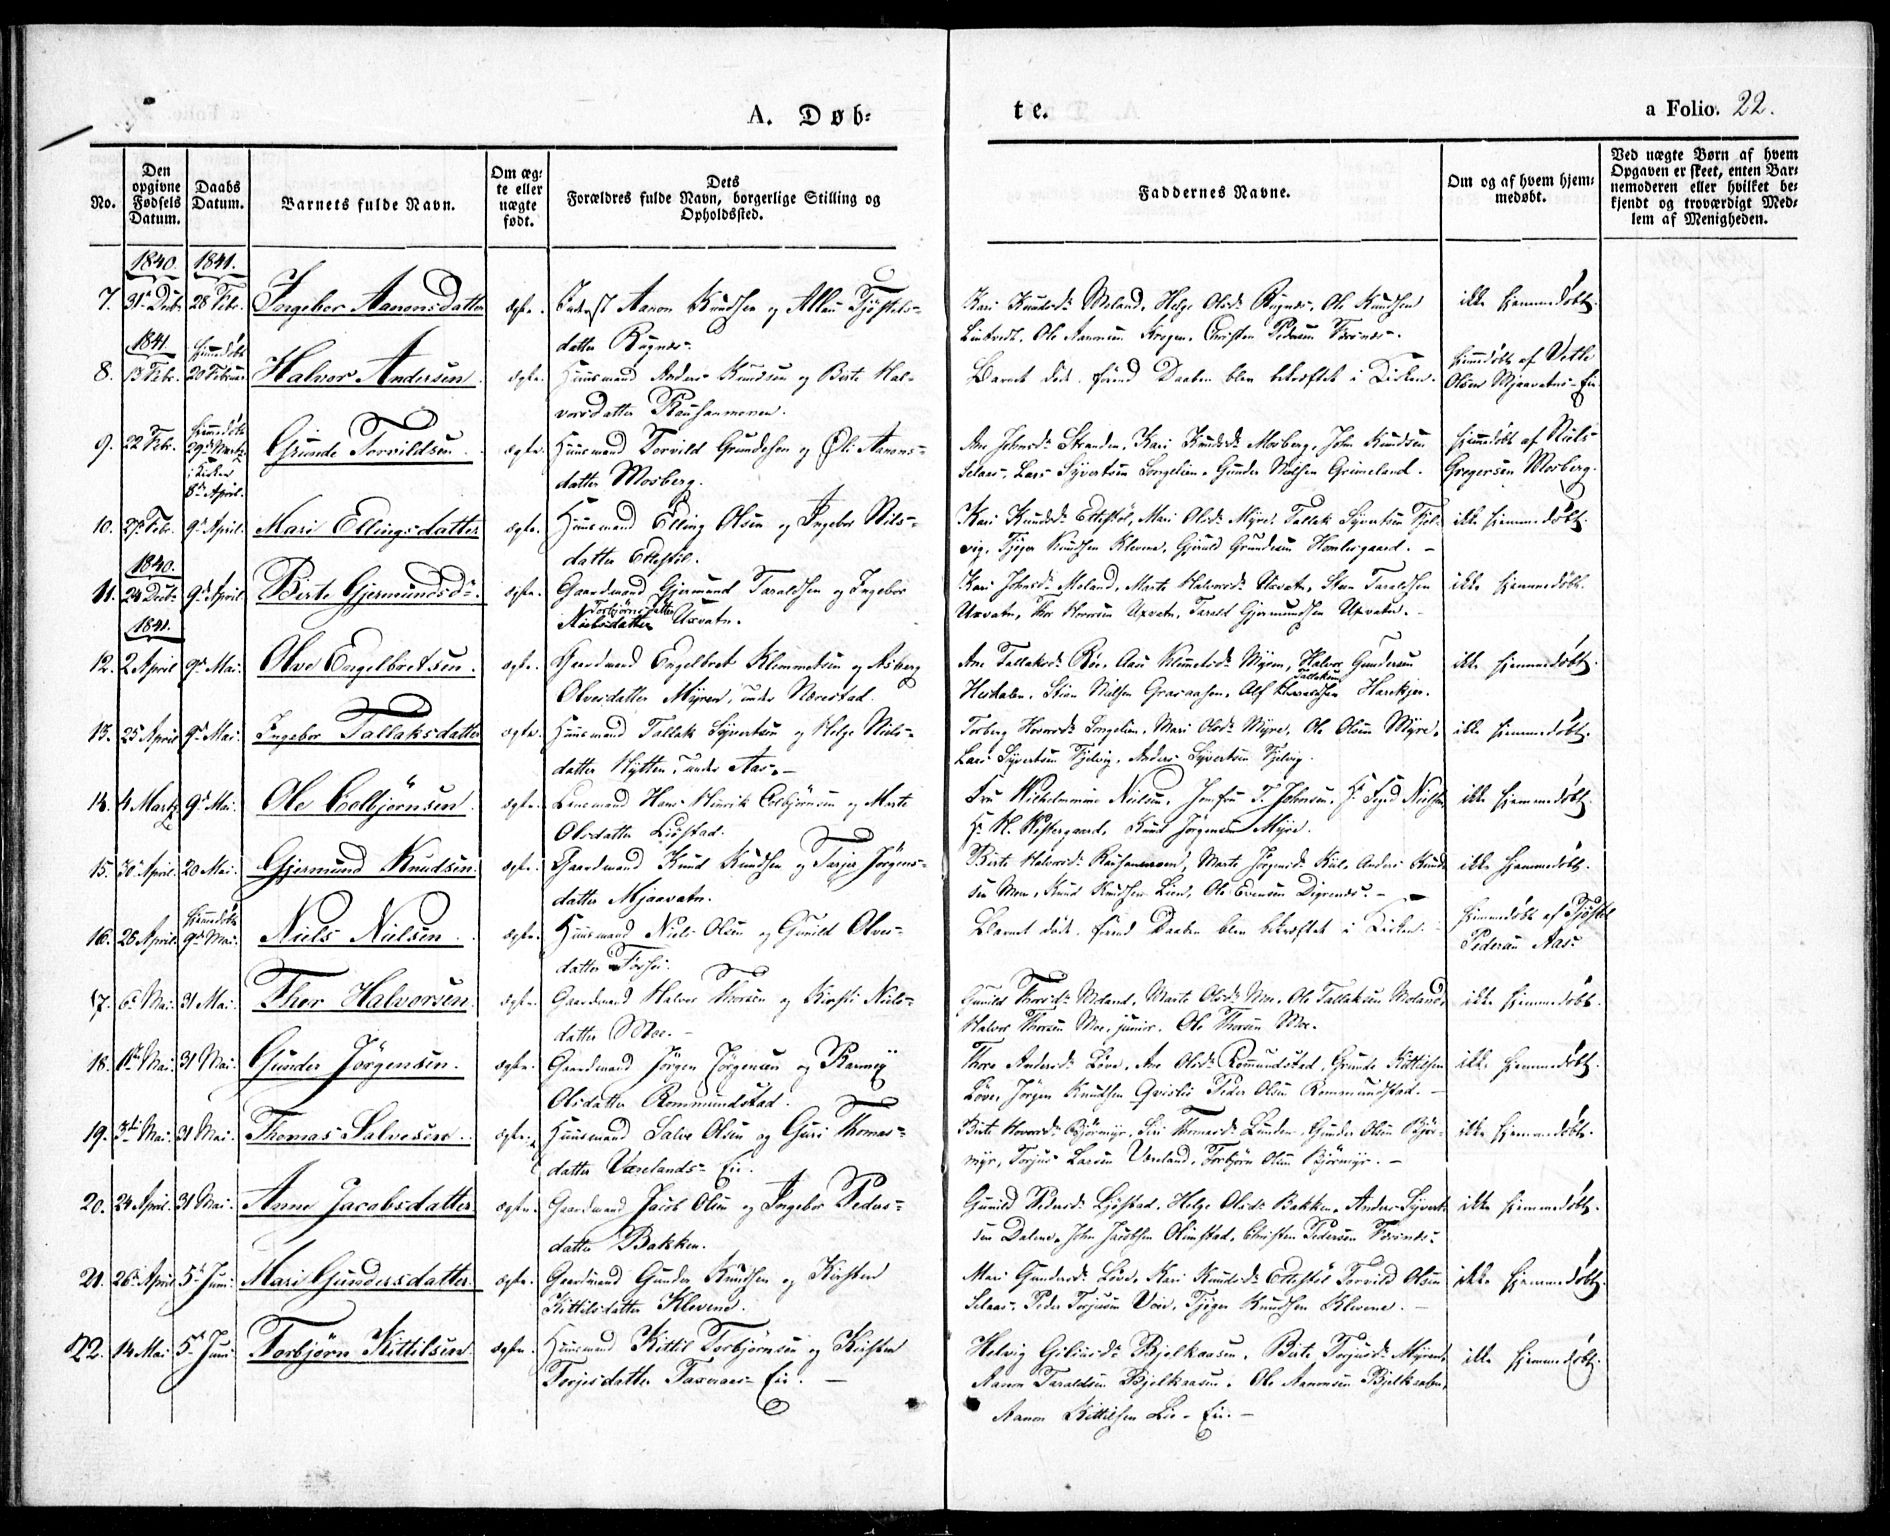 A. Døb-
te.
a Folio. 22.
No.
Den opgivne Fødsels Datum.
Daabs Datum.
Barnets fulde Navn.
Om ægte eller nægte født.
Dets Forældres fulde Navn, borgerlige Stilling og Opholdssted.
Faddernes Navne.
Om og af hvem hjemmedøbt.
Ved nægte Børn af hvem Opgaven er skeet, enten Barnemoderen eller hvilket bekjendt og troværdigt Medlem af Menigheden.
1840. 1841.
7. 31 Decbr 28 Febr. Ingebor Aanonsdatter ægte. Inderst Aanon Knudsen og Tjøstels-
datter Rugnes. Kari Knudsdr Moland, Helge Olsdr Rugnes, Ole Knudsen
Ole Aanonsen Krogen, Christen Pedersen ikke hjemmedøbt.
1841. Hjemmedøbt
8. 13 Febr. 20 Februar Halvor Andersen. ægte. Huusmand Anders Knudsen og Berte Hal-
vorsdatter Rausanmoen. Barnet døde førend Daaben blev bekræftet i Kirken. hjemmedøbt af Vetle
Olsen Mjaavatns-Eie
9. 22 Febr. Hjemmedøbt
29de Martz
i Kirken
8de April. Grunde Torvildsen. ægte. Huusmand Torvild Grundesen og Øli Aanons-
datter Mosberg. Ane Johnsdr Stranden, Kari Knudsdr Mosberg, John Knudsen
Selaas, Lars Syvertsen Longelien, Gunder Nielsen Grimeland. hjemmedøbt af Niels
Gregersen Mosberg.
10. 27 Febr. 9de April. Mari Ellingsdatter ægte. Huusmand Elling Olsen og Ingebor Nils-
datter Ettestøl. Kari Knudsdr Ettestøl, Mari Olsdr Myre, Tallak Syvertsen Fjel-
vig, Tjøger Knudsen Klevene, Gjeruld Grundesen ikke hjemmedøbt.
1840.
11. 24 Decbr 9de April Berte Gjermundsdr. ægte. Gaardmand Gjermund Taraldsen og Ingebor
Torbjørnsdatter
Nielsdatter Uxvatn. Kari Johnsdr Moland, Marte Halvorsdr Uxvatn, Sten Taraldsen
Uxvatn, Thor Hovorsen Uxvatn, Tarald Gjermundsen Uxvatn. ikke hjemmedøbt.
1841.
12. 2 April 9de Mai. Olve Engelbretsen. ægte. Gaardmand Engelbret Klemmetsen og Asberg
Olvesdatter Myren, under Nærestad. Ane Tallaksdr Røe, Aase Klemetsdr Myren, Halvor Gundersen
Tallaksen
Stian Nielsen Graaasen, Alf ikke hjemmedøbt.
13. 25 April 9de Mai. Ingebor Tallaksdatter ægte. Huusmand Tallak Syvertsen og Helge Niels-
datter Hytten, under Aas. Torberg Hovorsdr Longelien, Mari Olsdr Myre, Ole Olsen Myre,
Lars Syvertsen Fjelvig, Anders Syvertsen Fjelvig. ikke hjemmedøbt.
14. 4 Martz 9de Mai. Ole Colbjørnsen. ægte. Lensmand Hans Henrik Colbjørnsen og Marte
Olsdatter Liøstad. Fru Wilhelmine Nielsen, Jomfru T. Johnsen, Hr Nielsen,
Hr N. Westergaard, Knud Jørgensen Myre. ikke hjemmedøbt.
15. 30 April. 20 Mai. Gjermund Knudsen. ægte. Gaardmand Knud Knudsen og Tarjer Jørgens-
datter Mjaavatn. Berte Halvorsdr Marte Jørgensdr Anders Knud-
sen Moe, Knud Knudsen Lien, Ole Evensen Digernes. ikke hjemmedøbt.
16. 26 April. Hjemmedøbt
9de Mai. Niels Nielsen. ægte. Huusmand Niels Olsen og Gunild Olves-
datter Fosse. Barnet døde førend Daaben blev bekræftet i Kirken. hjemmedøbt af Tjøstel
Pedersen Aas.
17. 6te Mai. 31 Mai. Thor Halvorsen. ægte. Gaardmand Halvor Thorsen og Kirsti Niels-
datter Moe. Gunild Thorsdr Moland, Marte Olsdr Moe, Ole Tallaksen Moland,
Halvor Thorsen Moe, junior. Ole Thorsen Moe. ikke hjemmedøbt.
18. 11te Mai. 31 Mai. Gunder Jørgensen. ægte. Gaardmand Jørgen Jørgensen og Ranveig
Olsdatter Rommundstad. Thore Andersdr Løve, Ane Olsdr Rommundstad, Grunde Kittilsen
Løve, Jørgen Knudsen Qvislie Peder Olsen Rommundstad. ikke hjemmedøbt.
19. 3die Mai. 31 Mai. Thomas Salvesen. ægte. Huusmand Salve Olsen og Guri Thomas-
datter Værelands-Eie. Berte Hovorsdr Bjørmyr, Siri Thomasdr Lunden, Gunder Olsen Bjør-
myr, Torjus Larsen Væreland, Torbjørn Olsen Bjørmyr. ikke hjemmedøbt.
20. 24 April. 31 Mai. Anne Jacobsdatter ægte. Gaardmand Jacob Olsen og Ingebor Peders-
datter Bakken. Gunild Pedersdr Ljøstad, Helge Olsdr Bakken, Anders Syvert-
sen Dalene, John Jacobsen Olimstad, Christen Pedersen ikke hjemmedøbt.
21. 26de April 5te Juni. Mari Gundersdatter. ægte. Gaardmand Gunder Knudsen og Kirsten
Kittilsdatter Klevene. Mari Gundersdr Løve, Kari Knudsdr Ettestøl Torvild Olsen
Selaas, Peder Torjusen Tjøger Knudsen Klevene. ikke hjemmedøbt.
22. 14 Mai 5te Juni Torbjørn Kittilsen ægte. Huusmand Kittil Torbjørnsen og Kirsten
Torjesdatter Eie. Helvig Bjelkaasen, Berte Torjusdr Myren,
Aanon Taraldsen Bjelkaasen, Ole Aanonsen Bjelkaasen,
Aanon Kittilsen Lie-Eie. ikke hjemmedøbt.